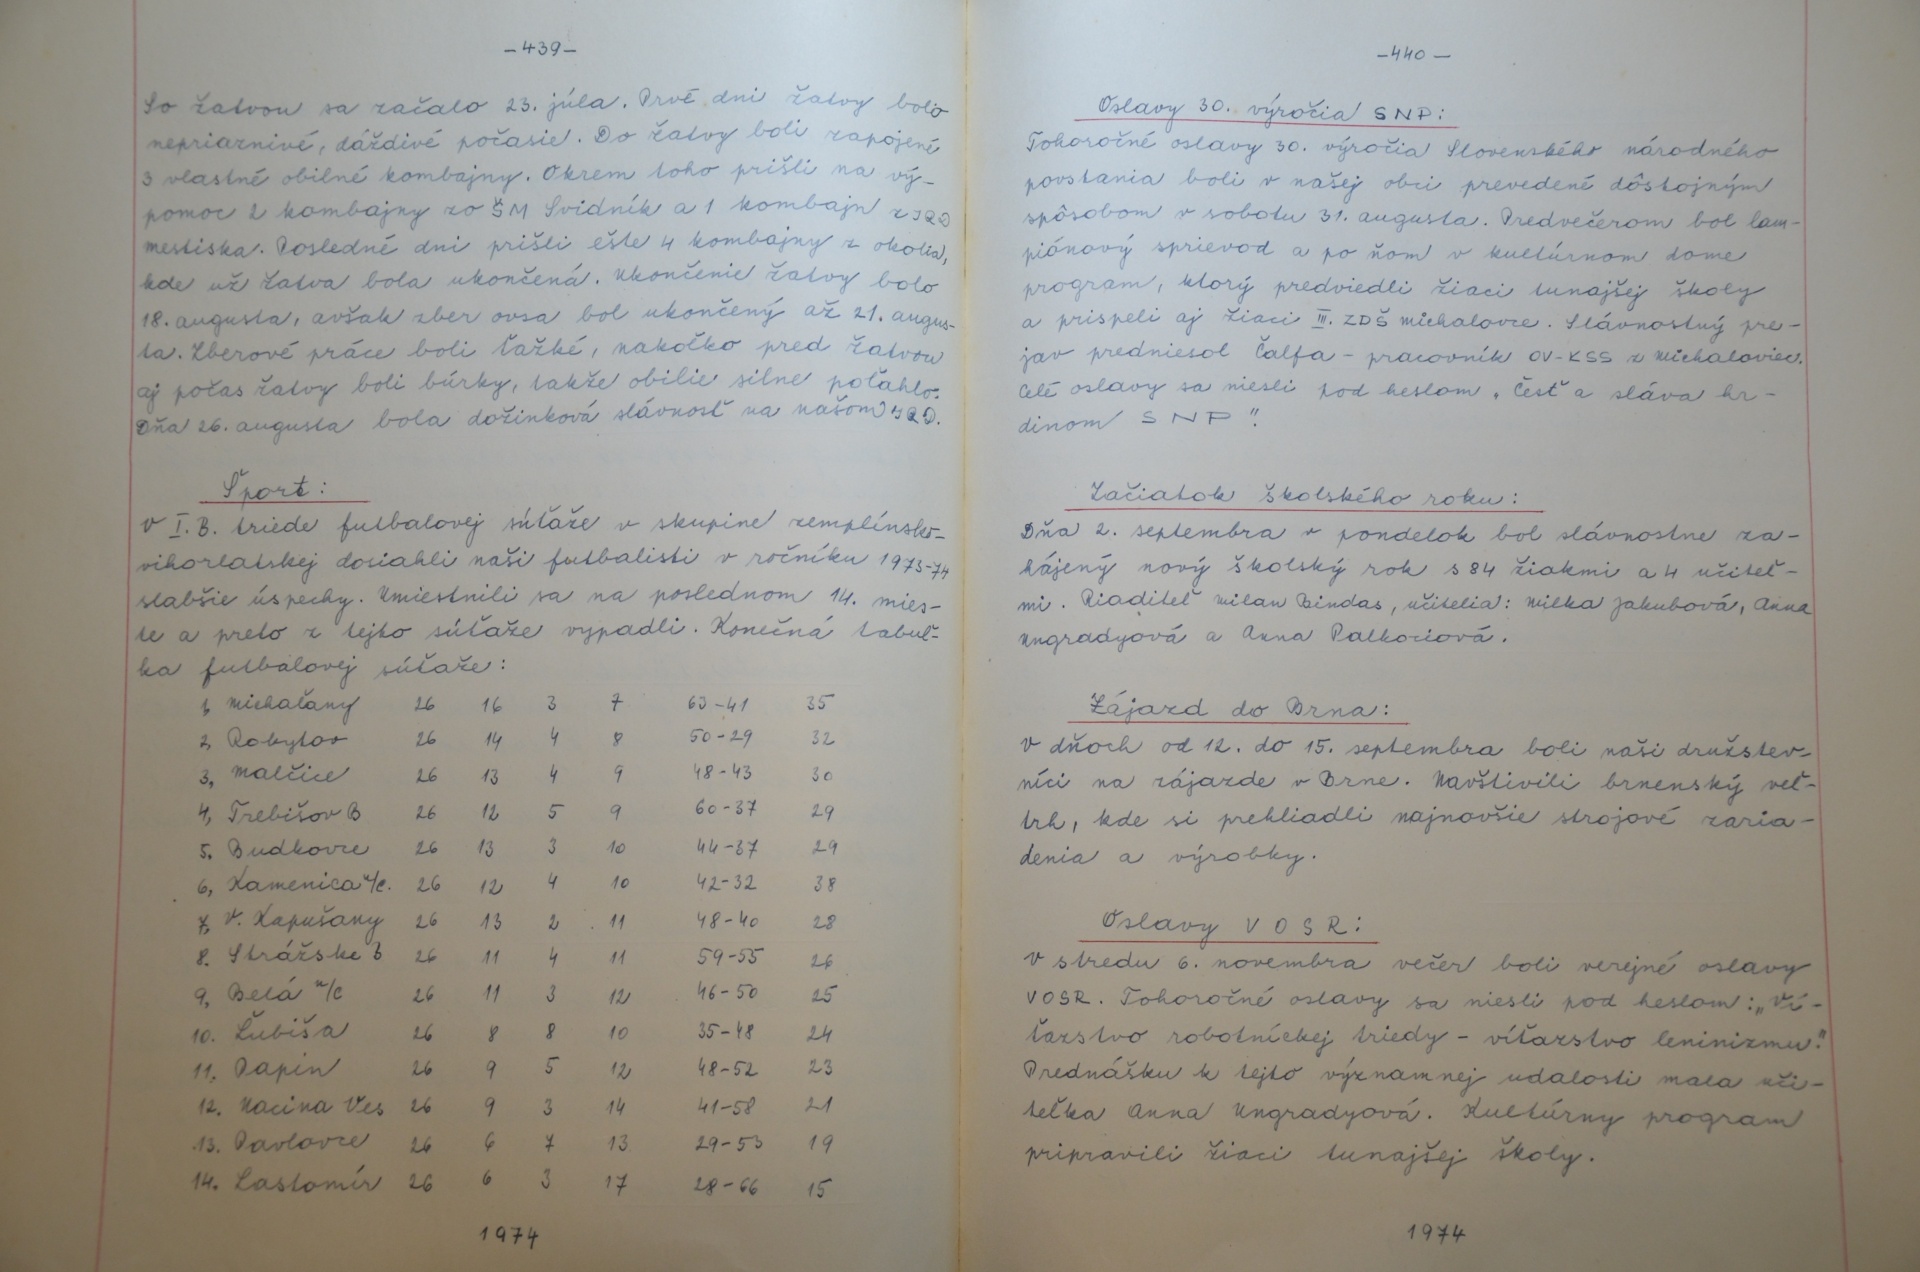 -439-
So žatvou sa začalo 23. júla. Prvé dni žatvy bolo
nepriaznivé, dáždivé počasie. Do žatvy boli zapojené
3 vlastné obilné kombajny. Okrem toho prišli na vý-
pomoc 2 kombajny zo ŠM Svidník a 1 kombajn z JRD
mestiska. Posledné dni prišli ešte 4 kombajny z okolia,
kde už žatva bola ukončená. Ukončenie žatvy bolo
18. augusta, avšak zber ovsa bol ukončený až 21. augus-
ta. Zberové práce boli ťažké, nakoľko pred žatvou
aj počas žatvy boli búrky, takže obilie silne poľahlo.
Dňa 26. augusta bola dožinková slávnosť na našom JRD.
Šport:
V I.B. triede futbalovej súťaže v skupine zemplínsko-
vihorlatskej dosiahli naši futbalisti v ročníku 1973-74
slabšie úspechy. Umiestnili sa na poslednom 14. mies-
te a preto z tejto súťaže vypadli. Konečná tabuľ-
ka futbalovej súťaže:
1, Michaľany 26 16 3 7 63-41 35
2, Rakytov 26 14 4 8 50-29 32
3, Malčice 26 13 4 9 48-43 30
4, Trebišov B 26 12 5 9 60-37 29
5. Budkovce 26 13 3 10 44-37 29
6, Kamenica n/c. 26 12 4 10 42-32 38
7, V. Kapušany 26 13 2 11 48-40 28
8. Strážske B 26 11 4 11 59-55 26
9, Belá n/c 26 11 3 12 46-50 25
10. Ľubiša 26 8 8 10 35-48 24
11, Papín 26 9 5 12 48-52 23
12. Nacina Ves 26 9 3 14 41-58 21
13. Pavlovce 26 6 7 13 29-53 19
14. Lastomír 26 6 3 17 28-66 15
1974
-440-
Oslavy 30. výročia SNP:
Tohoročné oslavy 30. výročia Slovenského národného
povstania boli v našej obci prevedené dôstojným
spôsobom v sobotu 31. augusta. Predvečerom bol lam-
piónový sprievod a po ňom v kultúrnom dome
program, ktorý predviedli žiaci tunajšej školy
a prispeli aj žiaci III. ZDŠ Michalovce. Slávnostný pre-
jav predniesol Čalfa - pracovník OV-KSS z Michaloviec.
Celé oslavy sa niesli pod heslom „Česť a sláva hr-
dinom SNP".
Začiatok školského roku:
Dňa 2. septembra v pondelok bol slávnostne za-
hájený nový školský rok s 84 žiakmi a 4 učiteľ-
mi. Riaditeľ Milan Bindas, učitelia: Milka Jakubová, Anna
Ungradyová a Anna Palkociová.
Zájazd do Brna:
V dňoch od 12. do 15. septembra boli naši družstev-
níci na zájazde v Brne. Navštívili brnenský veľ-
trh, kde si prehliadli najnovšie strojové zaria-
denia a výrobky.
Oslavy VOSR:
V stredu 6. novembra večer boli verejné oslavy
VOSR. Tohoročné oslavy sa niesli pod heslom: „Ví-
ťazstvo robotníckej triedy - víťazstvo leninizmu."
Prednášku k tejto významnej udalosti mala uči-
teľka Anna Ungradyová. Kultúrny program
pripravili žiaci tunajšej školy.
1974